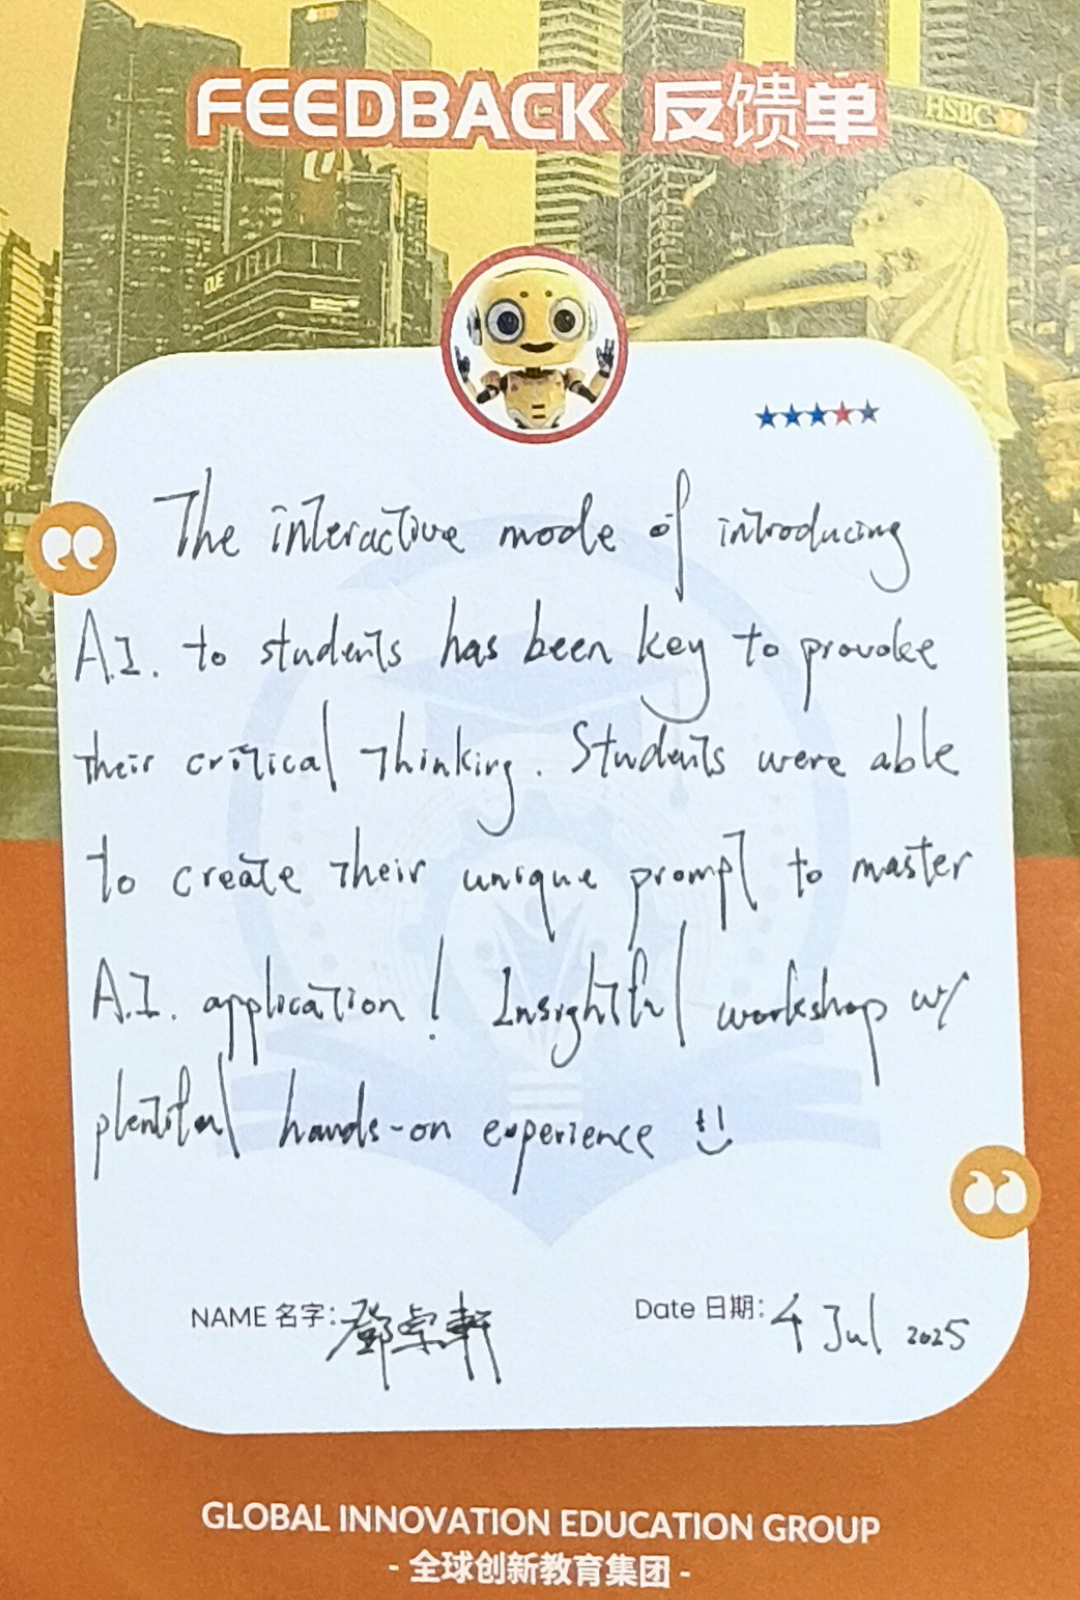 FEEDBACK 反馈单
HSBC
The interactive mode of introducing
A.I. to students has been key to provoke
their critical thinking. Students were able
to create their unique prompt to master
A.I. application! Insightful workshop w/
plentiful hands-on experience
NAME 名字: 鄧卓軒
Date 日期: 4 Jul 2025
GLOBAL INNOVATION EDUCATION GROUP
- 全球创新教育集团 -